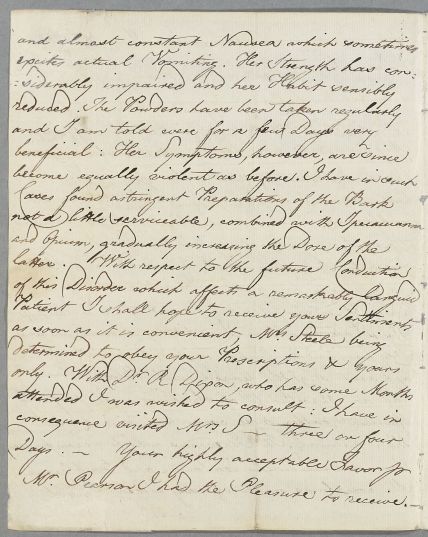 and almost constant Nausea which sometimes
excites actual Vomiting. Her Strength has con:
:siderably impaired and her Habit sensibly
reduced. The Powders have been taken regularly
and I am told were for a few Days very
beneficial: Her Symptoms, however, are since
become equally violent as before. I have in such
Cases found astringent Preparations of the Bark
not a little serviceable, combined with Ipecacuanna
and Opium, gradually increasing the Dose of the
latter. With respect to the future Conduction
of this Disorder which affects a remarkably languid
Patient I shall hope to receive your Sentiments
as soon as it is convenient, Mrs Steele being
determined to obey your Prescriptions & yours
only. With Dr. R. who has some Months
attended I was wished to consult: I have in
consequence visited Mrs S— three or four
Days. — Your highly acceptable Favor pr
Mr. Pearson I had the Pleasure to receive. —